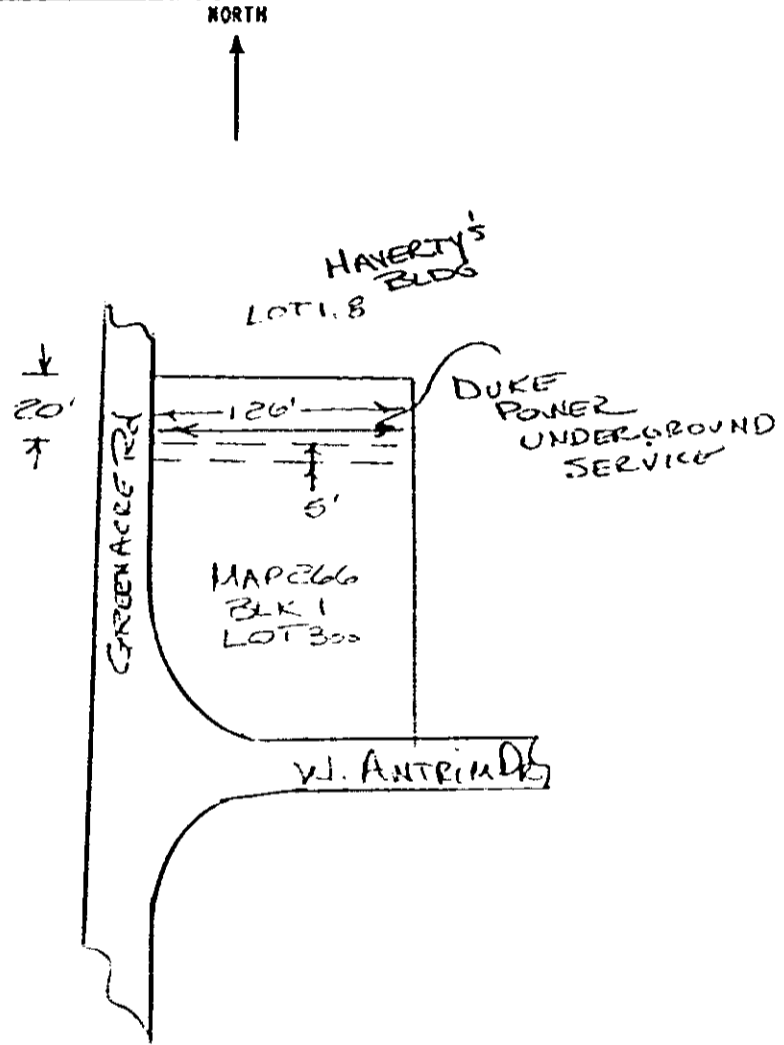 NORTH
HAVERTY'S
BLDG
LOT 1.8
20'
126'
DUKE
POWER
UNDERGROUND
SERVICE
5'
GREENACRE Rd
MAP 266
BLK 1
LOT 300
W. ANTRIM DR